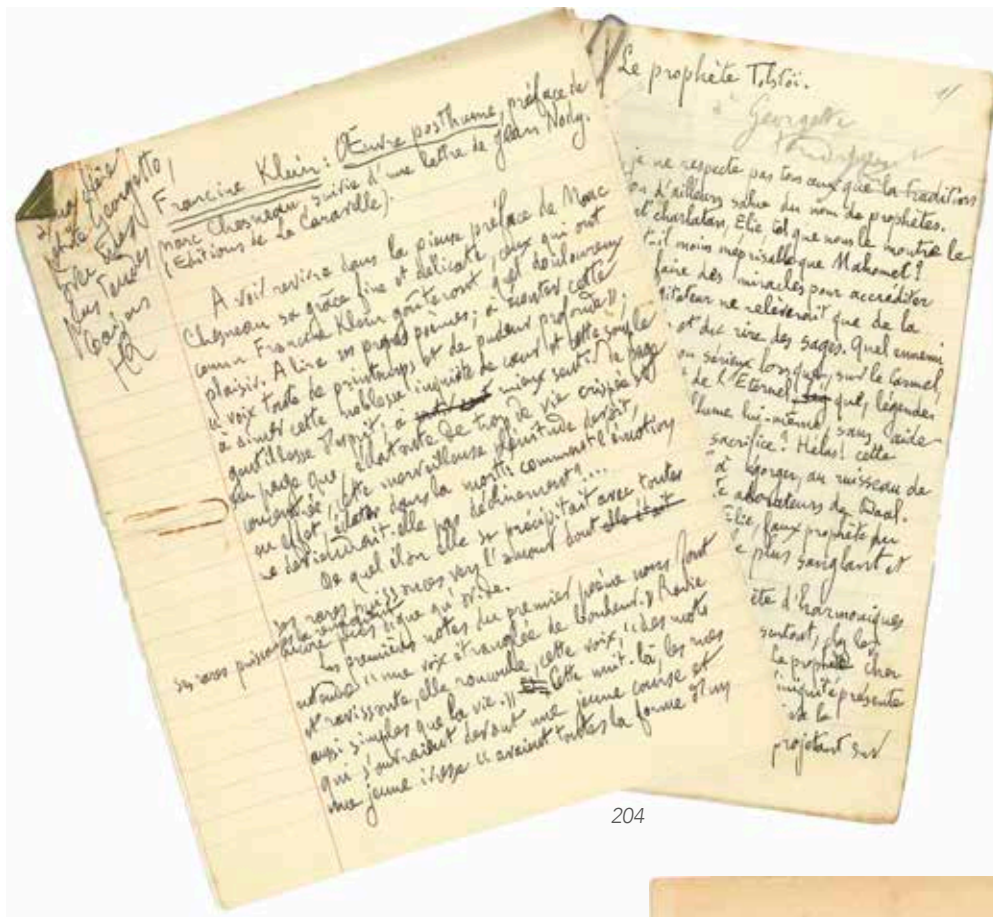 Francine Klein: Œuvre posthume, préface de
Marc Chesneau, suivie d'une lettre de Jean Nody.
(Editions de la Caravelle).
A voir revivre dans la pieuse préface de Marc
Chesneau sa grâce fine et délicate, ceux qui ont
connu Francine Klein goûteront quel douloureux
plaisir. A lire ses propres poèmes; à écouter cette
"voix toute de printemps et de pudeur profonde";
à aimer cette noblesse inquiète de cœur et cette souple
gentillesse d'esprit, à mieux sent. Ne page
en page que, éclatante de trop de vie crispée et
concentrée, cette merveilleuse plénitude devait,
en effet, éclater dans la mort: comment l'émotion
ne deviendrait-elle pas déchirement?...
De quel élan elle se précipitait avec toutes
ses rares puissances vers l'amour dont elle était
encore plus digne qu'avide.
Les premières notes du premier poème nous font
entendre "une voix étranglée de bonheur." Ravie
et ravissante, elle roucoule, cette voix, "des mots
aussi simples que la vie." Cette nuit-là, les rues
qui s'ouvraient devant une jeune course et
une jeune ivresse "avaient toutes la forme d'un
ses rares puissances
Georgette,
Tendres
HR
Le prophète Tolstoï.
1/
à Georgette
je ne respecte pas tous ceux que la tradition
d'ailleurs salue du nom de prophètes.
charlatan, Elie, tel que nous le montre le
-il moins méprisable que Mahomet?
faire des miracles pour accréditer
agitateur ne relèverait que de la
et du rire des sages. Quel ennemi
au sérieux lorsque, sur le Carmel,
de l'Eternel que, légende
allume lui-même, sans aide
sacrifice? Hélas! cette
à égorger, au ruisseau de
adorateurs de Baal.
Elie, faux prophète
le plus sanglant et
d'harmoniques
surtout,
le prophète cher
iniquité présente
de la
projetant sur
204